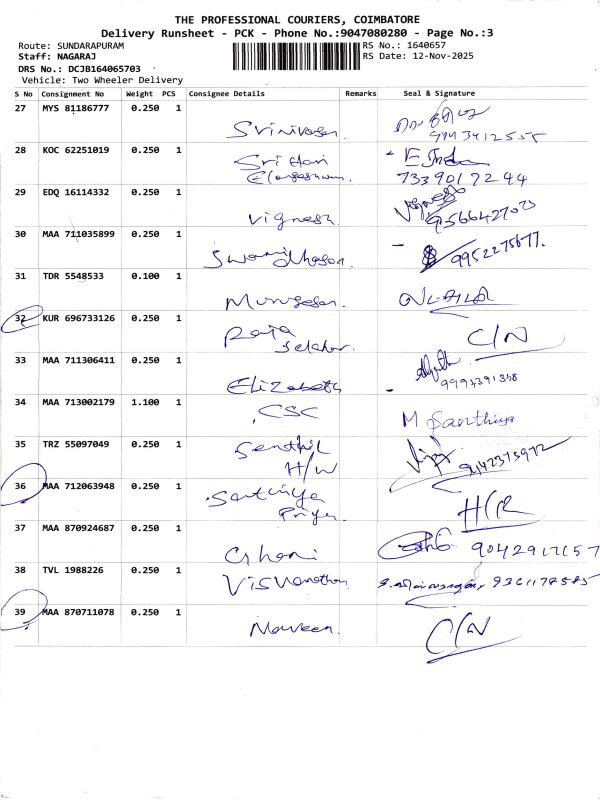 THE PROFESSIONAL COURIERS, COIMBATORE
Delivery Runsheet - PCK - Phone No.:9047080280 - Page No.:3
Route: SUNDARAPURAM RS No.: 1640657
Staff: NAGARAJ RS Date: 12-Nov-2025
DRS No.: DCJB164065703
Vehicle: Two Wheeler Delivery
S No Consignment No Weight PCS Consignee Details Remarks Seal & Signature
27 MYS 81186777 0.250 1
Srinivasan
28 KOC 62251019 0.250 1
Sri Hari
7339017244
29 EDQ 16114332 0.250 1
Vignesh
30 MAA 711035899 0.250 1
9952275677.
31 TDR 5548533 0.100 1
Murugesan.
32 KUR 696733126 0.250 1
Raja C/N
Sekhar.
33 MAA 711306411 0.250 1
Elizabeth
34 MAA 713002179 1.100 1
CSC M Santhiya
35 TRZ 55097049 0.250 1
Senthil
H/W
36 MAA 712063948 0.250 1
Sathiya
Priya
37 MAA 870924687 0.250 1
38 TVL 1988226 0.250 1
Viswanathan
39 MAA 870711078 0.250 1
Naveen. C/N